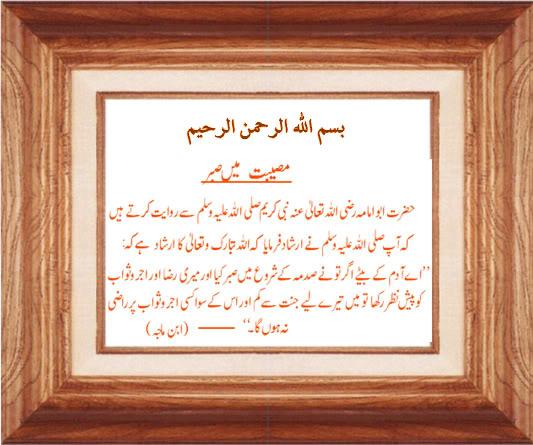 بسم الله الرحمن الرحيم
مصیبت میں صبر
حضرت ابوامامہ رضی اللہ تعالیٰ عنہ نبی کریم صلی اللہ علیہ وسلم سے روایت کرتے ہیں
کہ آپ صلی اللہ علیہ وسلم نے ارشاد فرمایا کہ اللہ تبارک وتعالیٰ کا ارشاد ہے کہ:
”اے آدم کے بیٹے اگر تو نے صدمہ کے شروع میں صبر کیا اور میری رضا اور اجر وثواب
کو پیش نظر رکھا تو میں تیرے لیے جنت سے کم اور اس کے سوا کسی اجر وثواب پر راضی
نہ ہوں گا۔“ —— (ابن ماجہ)